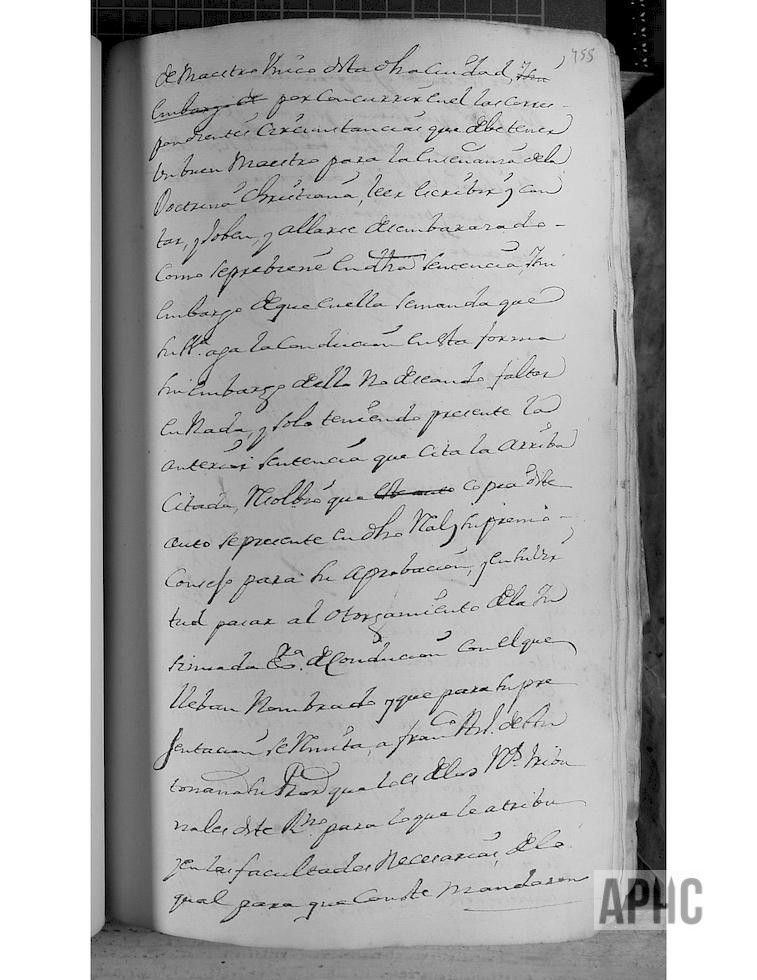 755
de Maestro Unico desta dha Ciudad, Y sin
embargo de por Concurrir en el las Corres-
pondientes Cercunstancias que debe tener
Un buen Maestro para la Enseñanza de la
Doctrina Christiana, leer escribir y con
tar, y Solen, y allarse desembarazado-
Como se prebiene en dha Sentencia, Y sin
embargo de que en ella se manda que
su Mrd. aga la Conducion en esta forma
sin embargo de ello No deseando faltar
en Nada, y solo teniendo presente la
anterior Sentencia que Cita la arriba
Citada, Resolbió que este auto Copia deste
auto se presente en dho Real y Supremo-
Consejo para su Aprobacion, y en su vir
tud pasar al Otorgamiento de la In
sinuada Essa. de Conducion Con el que
lleban Nombrado y que para su pre
sentacion se Remita, a Franco de An
tonana su Pror que lo es de los Rs. Tribu
nales deste Rno. para lo que le atribu
yen las facultades Necesarias, de lo
qual para que Conste Mandaron
APHC